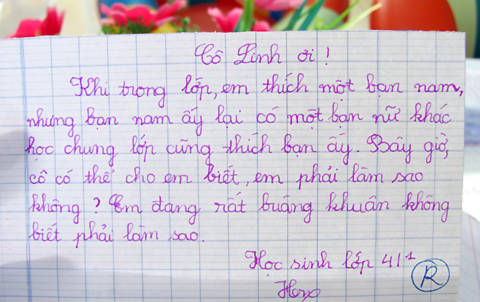 Cô Linh ơi !
Khi trong lớp, em thích một bạn nam,
nhưng bạn nam ấy lại có một bạn nữ khác
học chung lớp cũng thích bạn ấy. Bây giờ,
cô có thể cho em biết, em phải làm sao
không ? Em đang rất buâng khuân không
biết phải làm sao.
Học sinh lớp 4/1
R